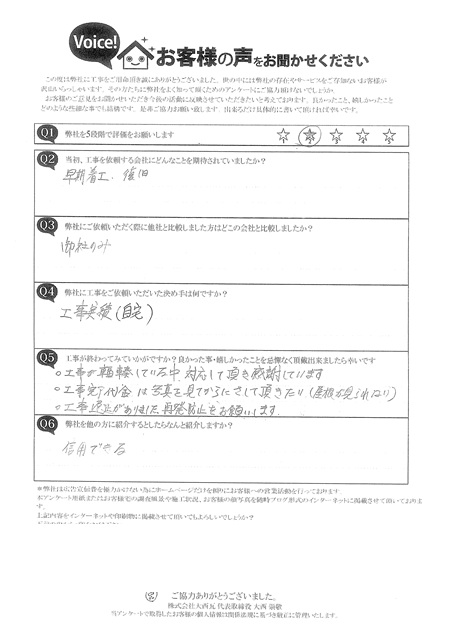 Voice!
お客様の声をお聞かせください
この度は弊社に工事をご用命頂き誠にありがとうございました。世の中には弊社の存在やサービスをご存知ないお客様が
お客様のご意見をお聞かせいただき今後の活動に反映させていただきたいと考えております。良かったこと、嬉しかったこと
Q1 弊社を5段階で評価をお願いします
Q2 当初、工事を依頼する会社にどんなことを期待されていましたか?
早期着工、復旧
Q3 弊社にご依頼いただく際に他社と比較しました方はどこの会社と比較しましたか?
御社のみ
Q4 弊社に工事をご依頼いただいた決め手は何ですか?
工事実績(自宅)
Q5 工事が終わってみていかがですか?良かった事・嬉しかったことを忌憚なく頂戴出来ましたら幸いです
○工事が輻輳している中、対応して頂き感謝しています
○工事完了代金は写真を見てからにさして頂きたい(屋根が見られない)
○工事 がありました、再発防止をお願いします
Q6 弊社を他の方に紹介するとしたらなんと紹介しますか?
信用できる
※弊社は広告宣伝費を極力かけない為にホームページだけを頼りにお客様への営業活動を行っております
本アンケート用紙またはお客様宅の調査風景や施工状況、お客様の顔写真を随時ブログ形式のインターネットに掲載させて頂いておりま
す。
上記内容をインターネットや印刷物に掲載させて頂いてもよろしいでしょうか?
ご協力ありがとうございました。
株式会社大西瓦 代表取締役 大西
当アンケートで取得したお客様の個人情報は関係法規に基づき厳正に管理いたします。